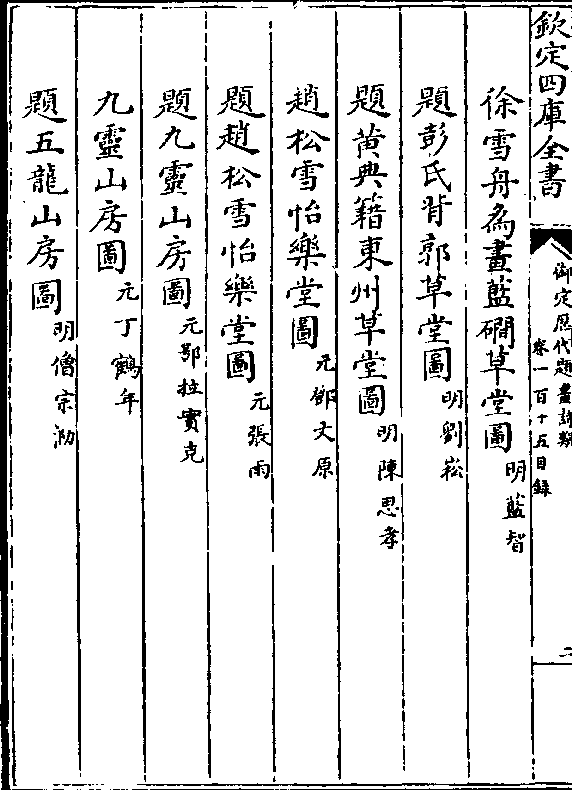 欽定四庫全書
御定歷代題畫詩類
卷一百十五目録
二
徐雪舟為畫藍磵草堂圖 明藍智
題彭氏背郭草堂圖 明劉崧
題黄典籍東州草堂圖 明陳思孝
趙松雪怡樂堂圖 元鄧文原
題趙松雪怡樂堂圖 元張雨
題九靈山房圖 元鄂拉實克
九靈山房圖 元丁鶴年
題五龍山房圖 明僧宗泐